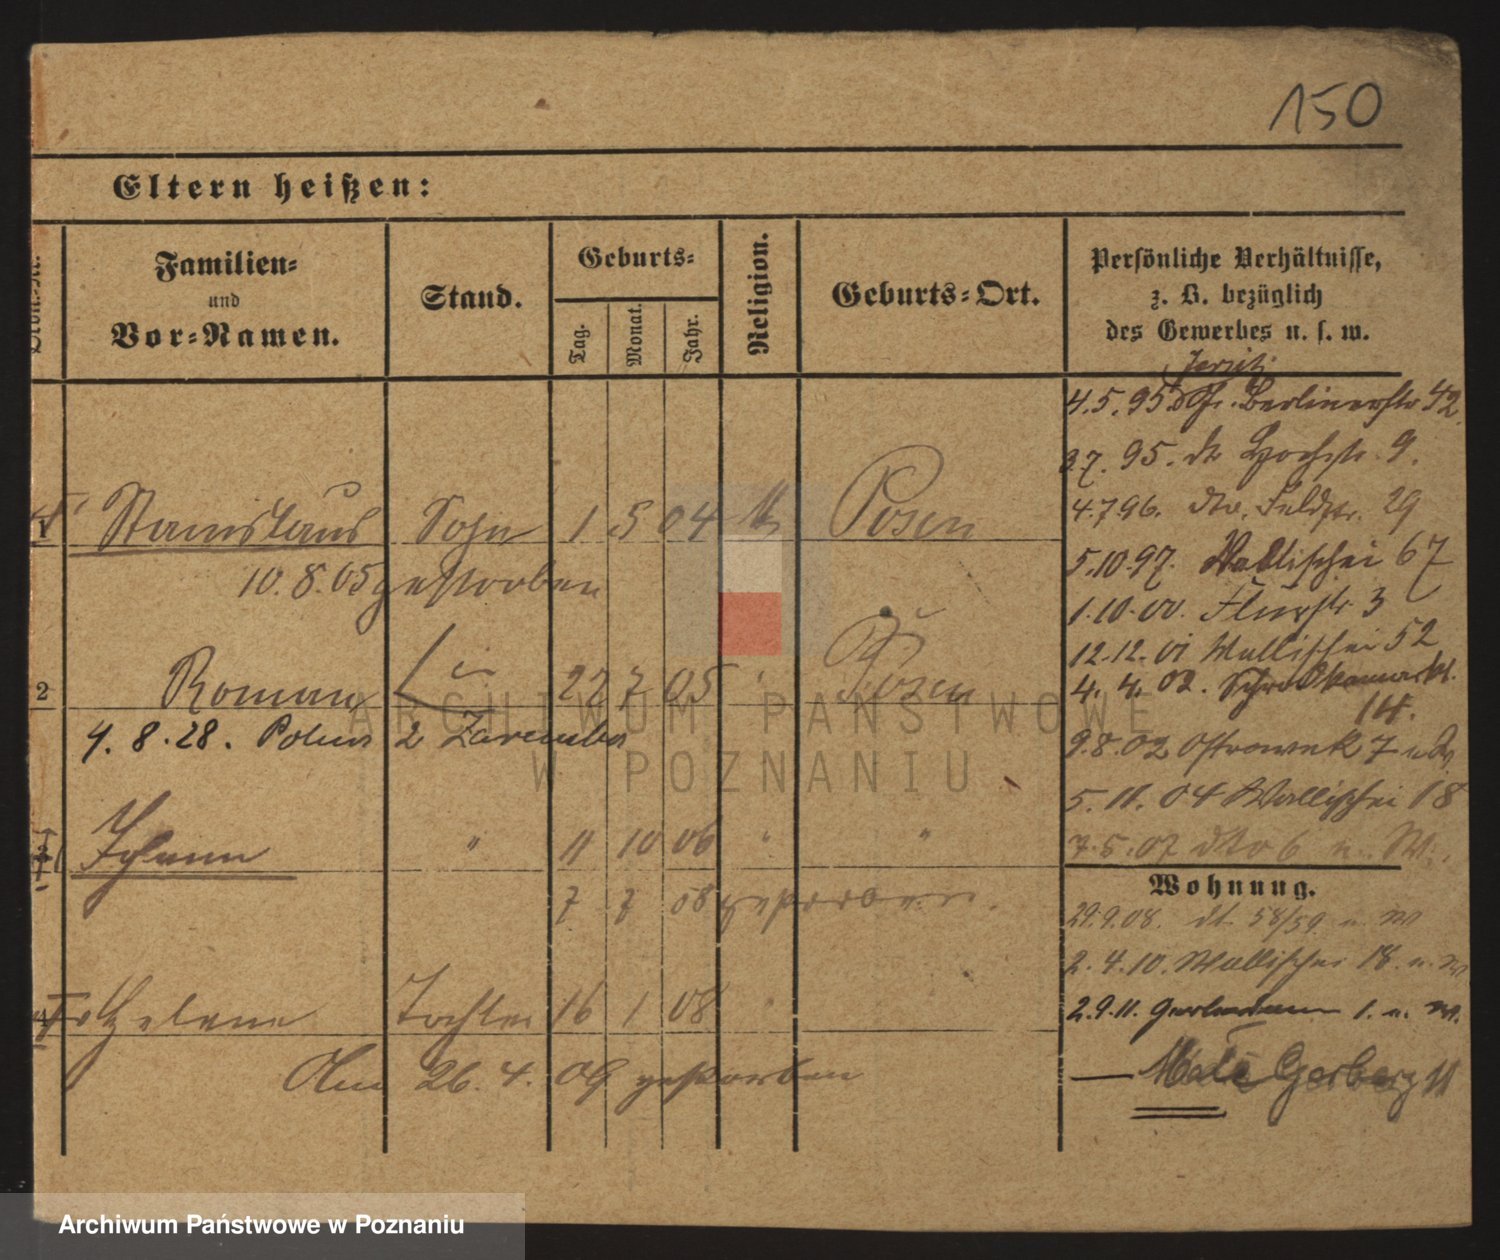 150
Eltern heißen:
Familien=
und
Vor=Namen.
Stand.
Geburts=
Tag.
Monat.
Jahr.
Religion.
Geburts=Ort.
Persönliche Verhältnisse,
z. B. bezüglich
des Gewerbes u. s. w.
4.5.95 Berlinerstr 42.
95. dto 9.
4.7.96. dto. Feldstr. 29
1 Stanislaus Sohn 1 5 04 Posen
5.10.97. Wallischei 67
10.8.05 gestorben
1.10.00. Flurstr. 3
12.12.01 Wallischei 52
2 Roman 22 7 05 " Posen
4. 4. 02. Schrodkamarkt.
14.
4.8.28. 2 Zaremba
9.8.02 Ostrowek 7
5.11.04 Wallischei 18
" 11 10 06 " "
7.5.07 dto 6 u. W.
Wohnung.
7 7 08 gestorben.
29.9.08. dt. 58/59 u. W
2.4.10. Wallischei 18. u. W
4 Helene Tochter 16 1 08 "
2.9.11. 1. u. W.
Am 26. 4. 09 gestorben
— Małe Gerbary 11
ARCHIWUM PAŃSTWOWE
W POZNANIU
Archiwum Państwowe w Poznaniu